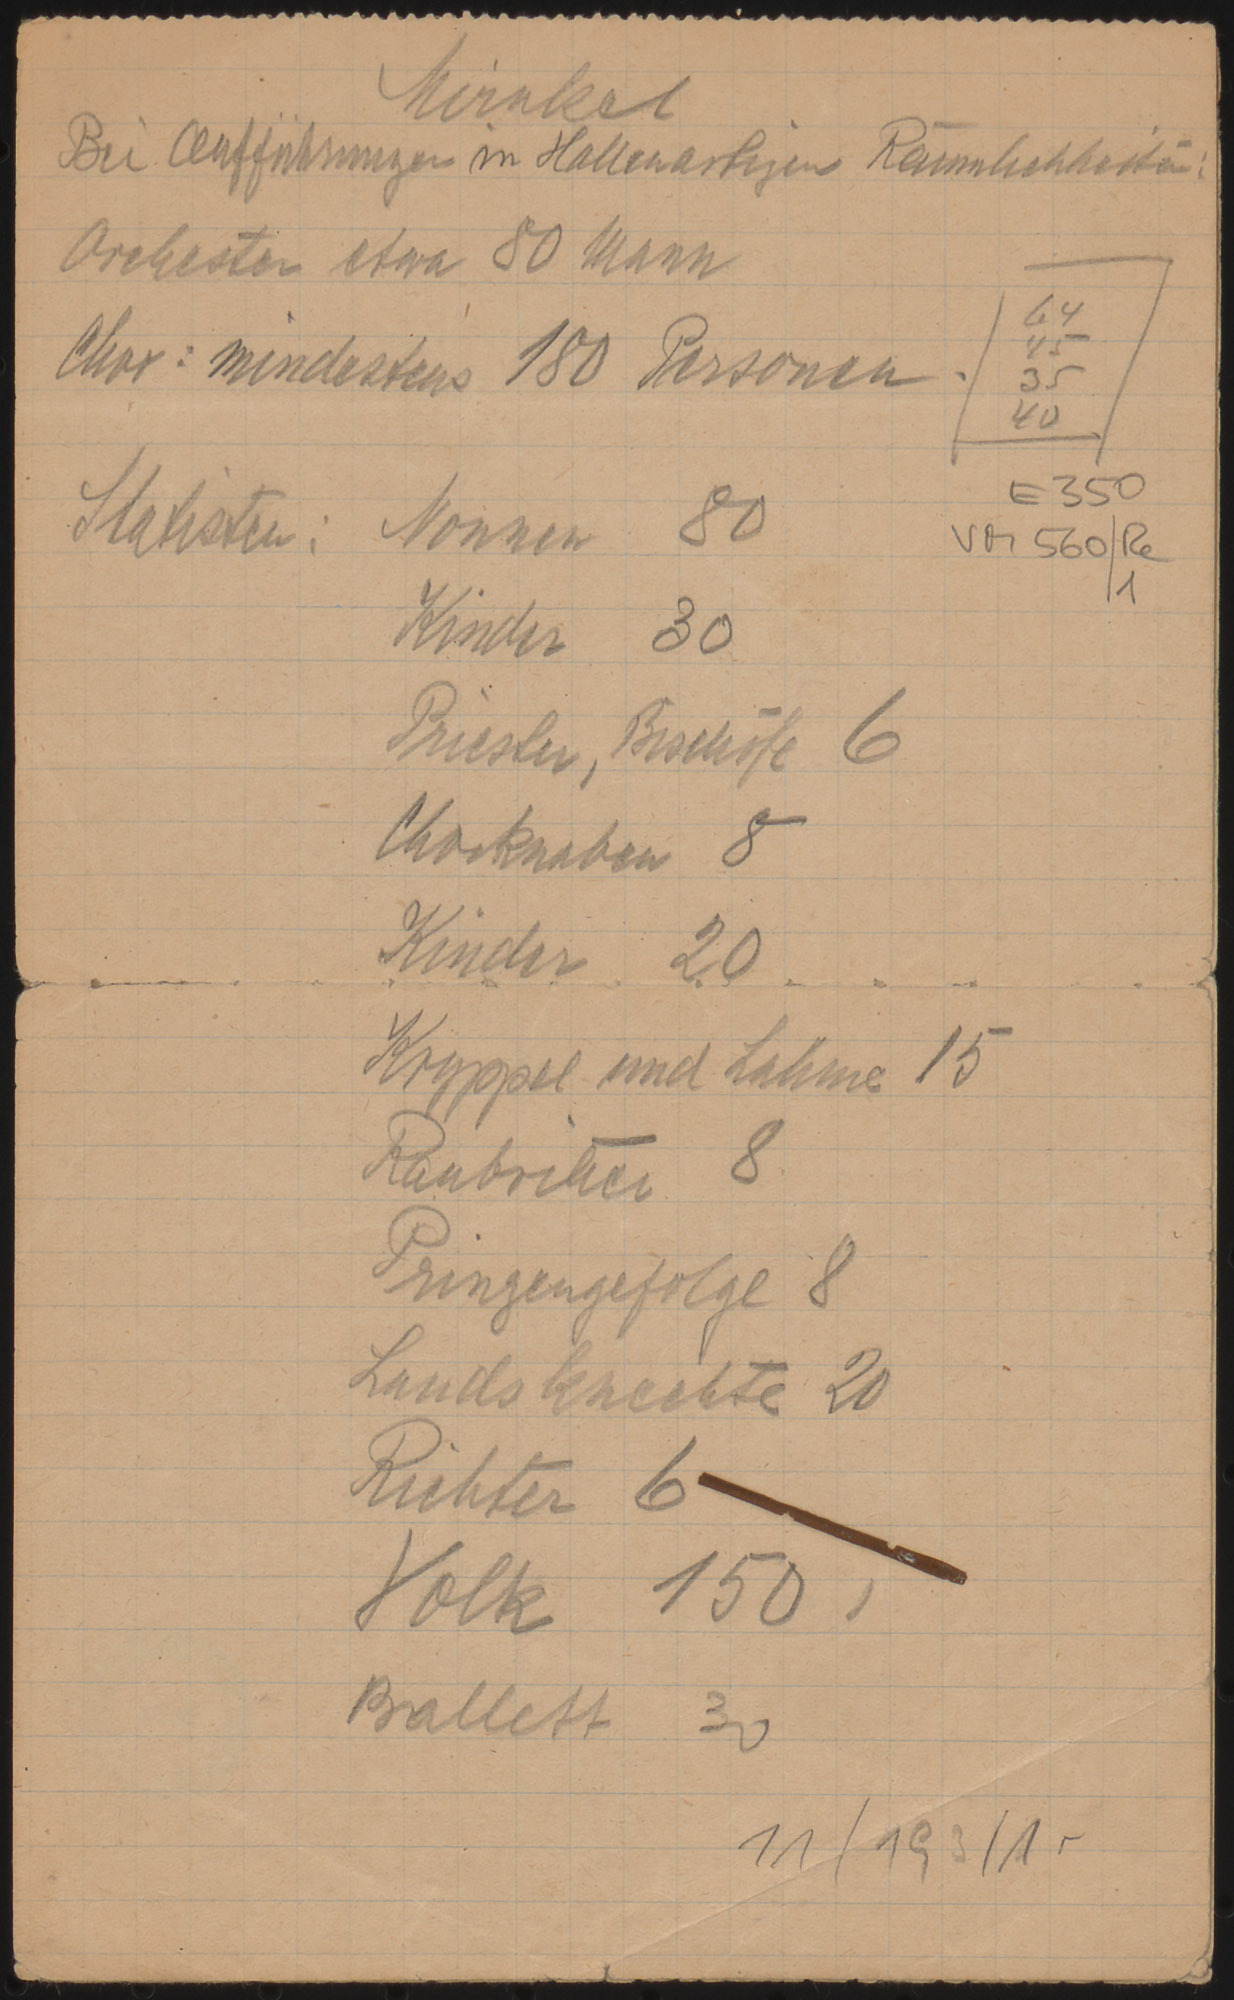 Mirakel
Bei Aufführungen in Hallenartigen Räumlichkeiten:
Orchester etwa 80 Mann
Chor: mindestens 180 Personen.
64
45
35
40
Statisten: Nonnen 80
E 350
VM 560/Re
1
Kinder 30
Priester, Bischöfe 6
Chorknaben 8
Kinder 20
Kryppel und Lahme 15
Raubritter 8
Prinzengefolge 8
Landsknechte 20
Richter 6
Volk 150
Ballett 30
11/193/1r